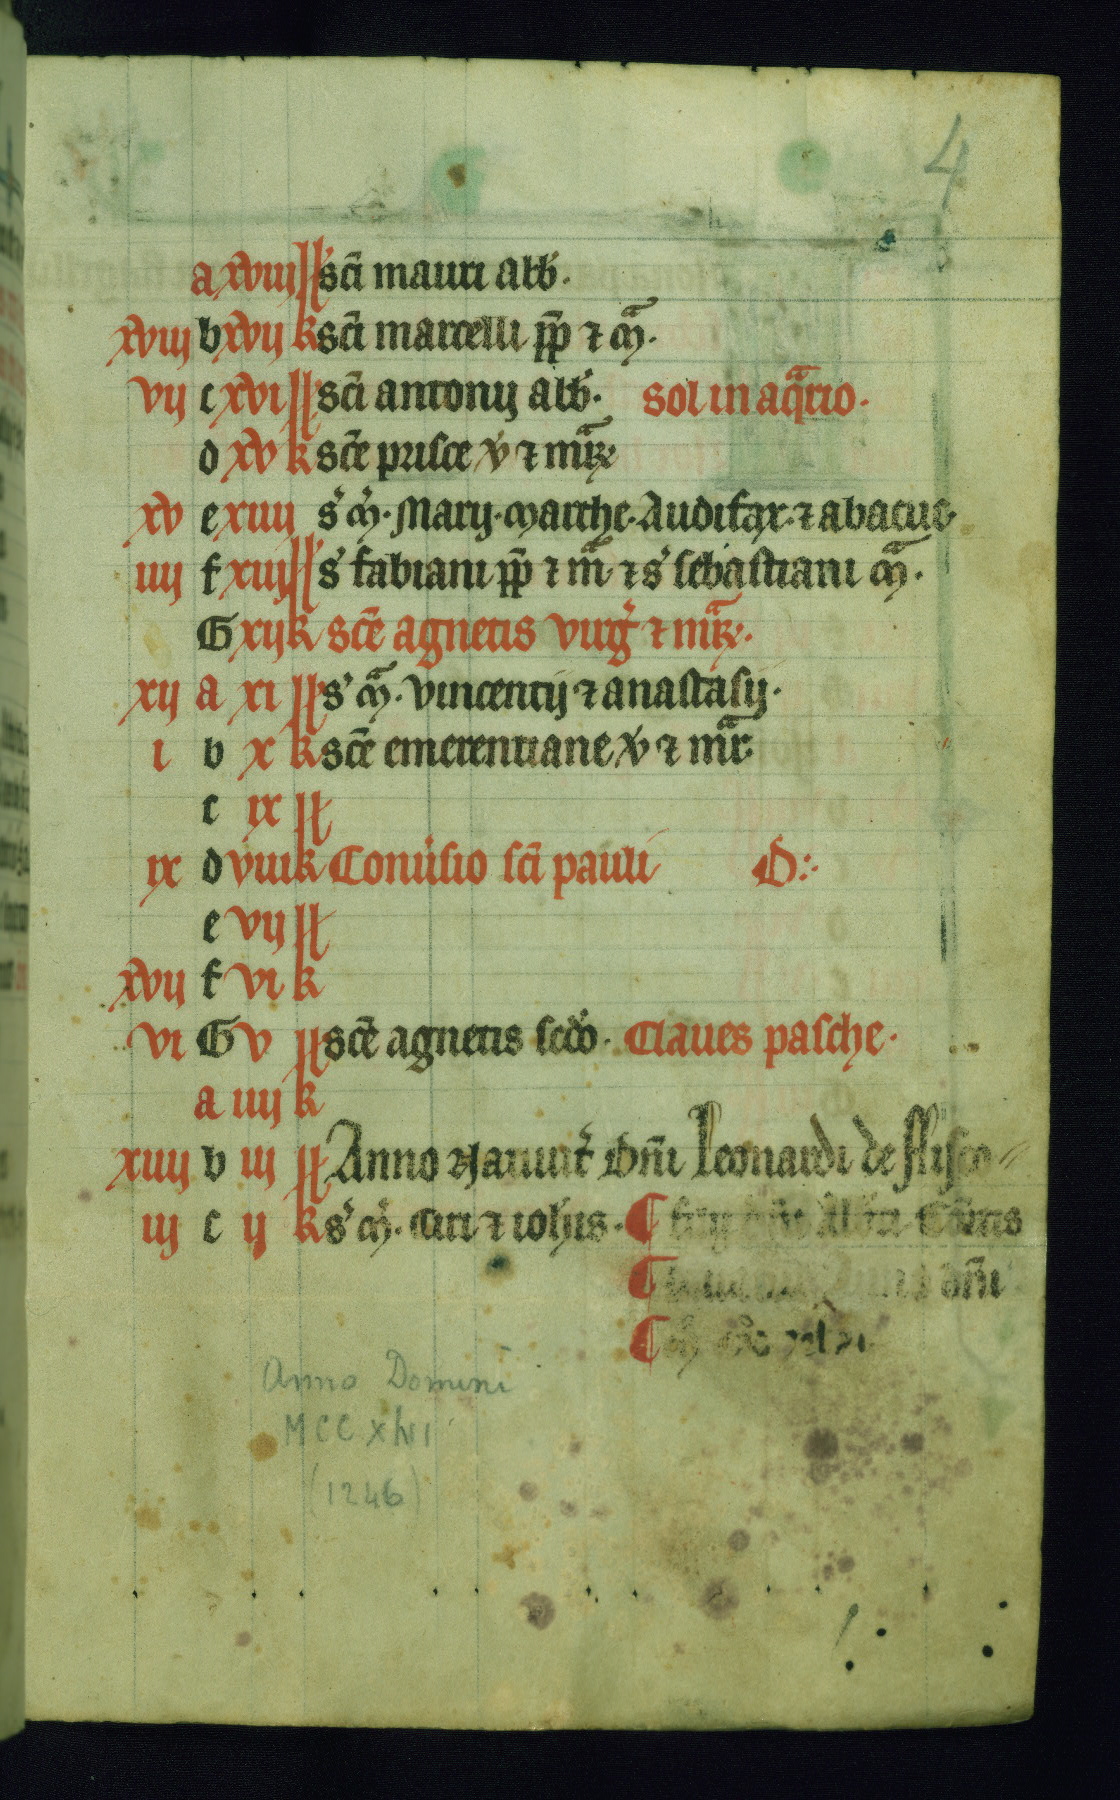 4
a xviii kl sci mauri abb.
xviii b xvii k sci marcelli pp ⁊ m.
vii c xvi kl sci antonij abb. sol in aqrio.
d xv k sce prisce v ⁊ mr
xv e xiiii s m. Marij. marthe. Audifax. ⁊ abacuc
iiii f xiii kl s fabiani pp ⁊ m ⁊ s sebastiani m.
G xii k sce agnetis virg ⁊ mr.
xii a xi kl s m. vincentij ⁊ anastasij.
i b x k sce emerentiane v ⁊ mr
c ix kl
ix d viii k Conusio sci pauli D
e vii kl
xvii f vi k
vi G v kl sce agnetis scdo. Claues pasche.
a iiii k
xiiii b iii kl Anno dni leonardi de flisco
iii c ii k s m. Ciri ⁊ iohis.
dni
Anno Domini
MCCxlvi
(1246)